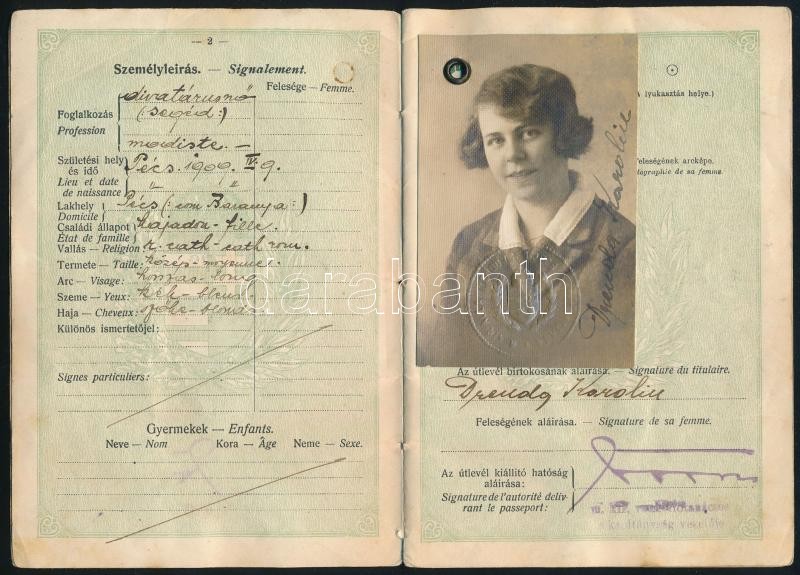 — 2 —
Személyleírás. — Signalement.
Felesége — Femme.
divatárusnő
Foglalkozás
(: segéd :)
Profession
modiste. —
Születési hely
és idő
Pécs. 1909. IV. 9.
Lieu et date
de naissance
" "
Lakhely
Domicile
Pécs (: com Baranya :)
Családi állapot
État de famille
hajadon - fille.
Vallás — Religion
r. cath - cath rom.
Termete — Taille:
közép - moyenne.
Arc — Visage:
hosszas - long
Szeme — Yeux:
kék - bleus
Haja — Cheveux:
Különös ismertetőjel:
Signes particuliers:
Gyermekek — Enfants.
Neve — Nom Kora — Âge Neme — Sexe.
(A lyukasztás helye.)
Feleségének arcképe.
Photographie de sa femme.
Drenda Karolin
darabanth
Az útlevél birtokosának aláírása. — Signature du titulaire.
Drenda Karolin
Feleségének aláírása. — Signature de sa femme.
Az útlevél kiállító hatóság
aláírása:
Signature de l'autorité déliv-
rant le passeport: